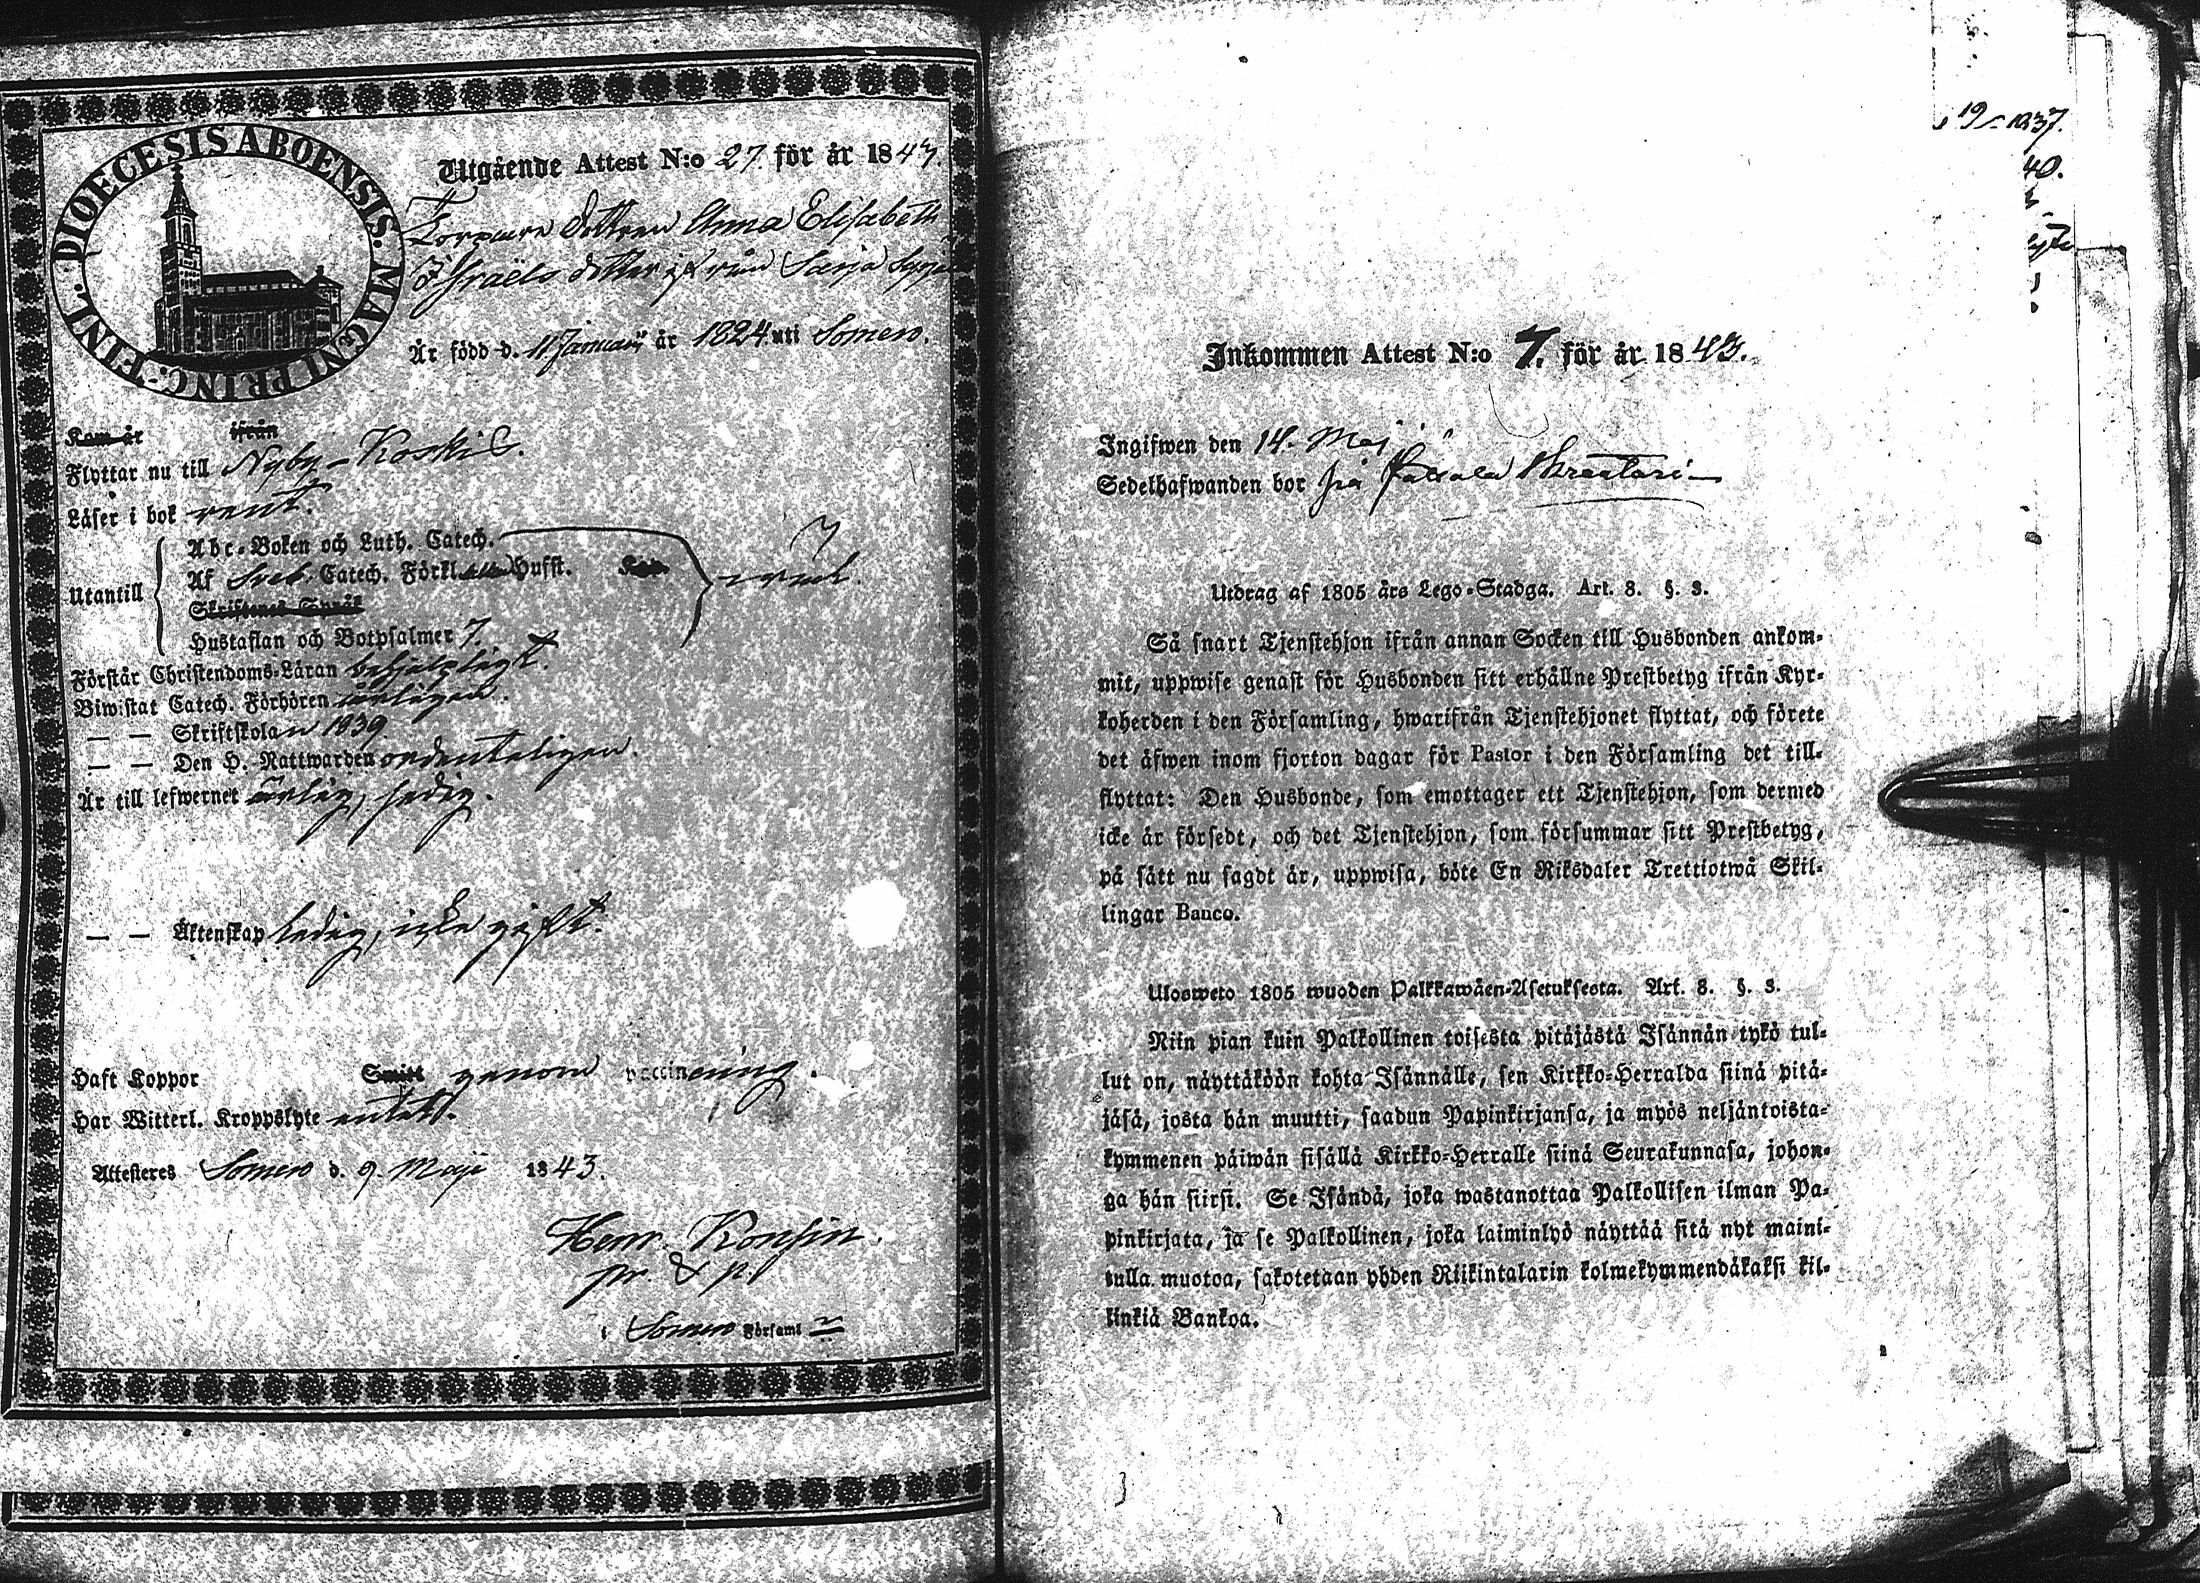 DIOECESIS ABOENSIS. MAGNI PRINC. FINL.
Utgående Attest N:o 27. för år 1843.
Torpare dottren Anna Elisabeth
Israëls dotter ifrån
Är född d. 11 Januarii år 1824 uti Somero.
Kom år ifrån
Flyttar nu till Nyby-Koskis.
Läser i bok rent.
Utantill
Abc-Boken och Luth. Catech.
Af Sveb. Catech. Förkl. Hufst.
Skriftenes Språk
Hustaflan och Botpsalmer 7.
Förstår Christendoms-Läran behjelpligt.
Biwistat Catech. Förhören årligen.
— — Skriftskolan 1839
— — Den H. Nattwarden ordenteligen.
Är till lefwernet ärlig, sedig.
— — Äktenskap ledig, icke gift.
Haft Koppor genom vaccinering.
Har Witterl. Kroppslyte
Attesteres Somero d. 9. Maji 1843.
Henr.
pr. & p.
i Somero Församl
19
1837.
40.
Inkommen Attest N:o 7. för år 1843.
Ingifwen den 14. Maj
Sedelhafwanden bor
Utdrag af 1805 års Lego-Stadga. Art. 8. §. 3.
Så snart Tjenstehjon ifrån annan Socken till Husbonden ankom-
mit, uppwise genast för Husbonden sitt erhållne Prestbetyg ifrån Kyr-
koherden i den Församling, hwarifrån Tjenstehjonet flyttat, och förete
det äfwen inom fjorton dagar för Pastor i den Församling det till-
flyttat: Den Husbonde, som emottager ett Tjenstehjon, som dermed
icke är försedt, och det Tjenstehjon, som försummar sitt Prestbetyg,
på sätt nu sagdt är, uppwisa, böte En Riksdaler Trettiotwå Skil-
lingar Banco.
Ulosweto 1805 wuoden Palkkawäen-Asetuksesta. Art. 8. §. 3.
Niin pian kuin Palkollinen toisesta pitäjästä Isännän tykö tul-
lut on, näyttäköön kohta Isännälle, sen Kirkko-Herralda siinä pitä-
jäsä, josta hän muutti, saadun Papinkirjansa, ja myös neljäntoista-
kymmenen päiwän sisällä Kirkko-Herralle siinä Seurakunnasa, johon-
ga hän siirsi. Se Isändä, joka wastanottaa Palkollisen ilman Pa-
pinkirjata, ja se Palkollinen, joka laiminlyö näyttää sitä nyt maini-
tulla muotoa, sakotetaan yhden Riikintalarin kolmekymmendäkaksi kil-
linkiä Bankoa.